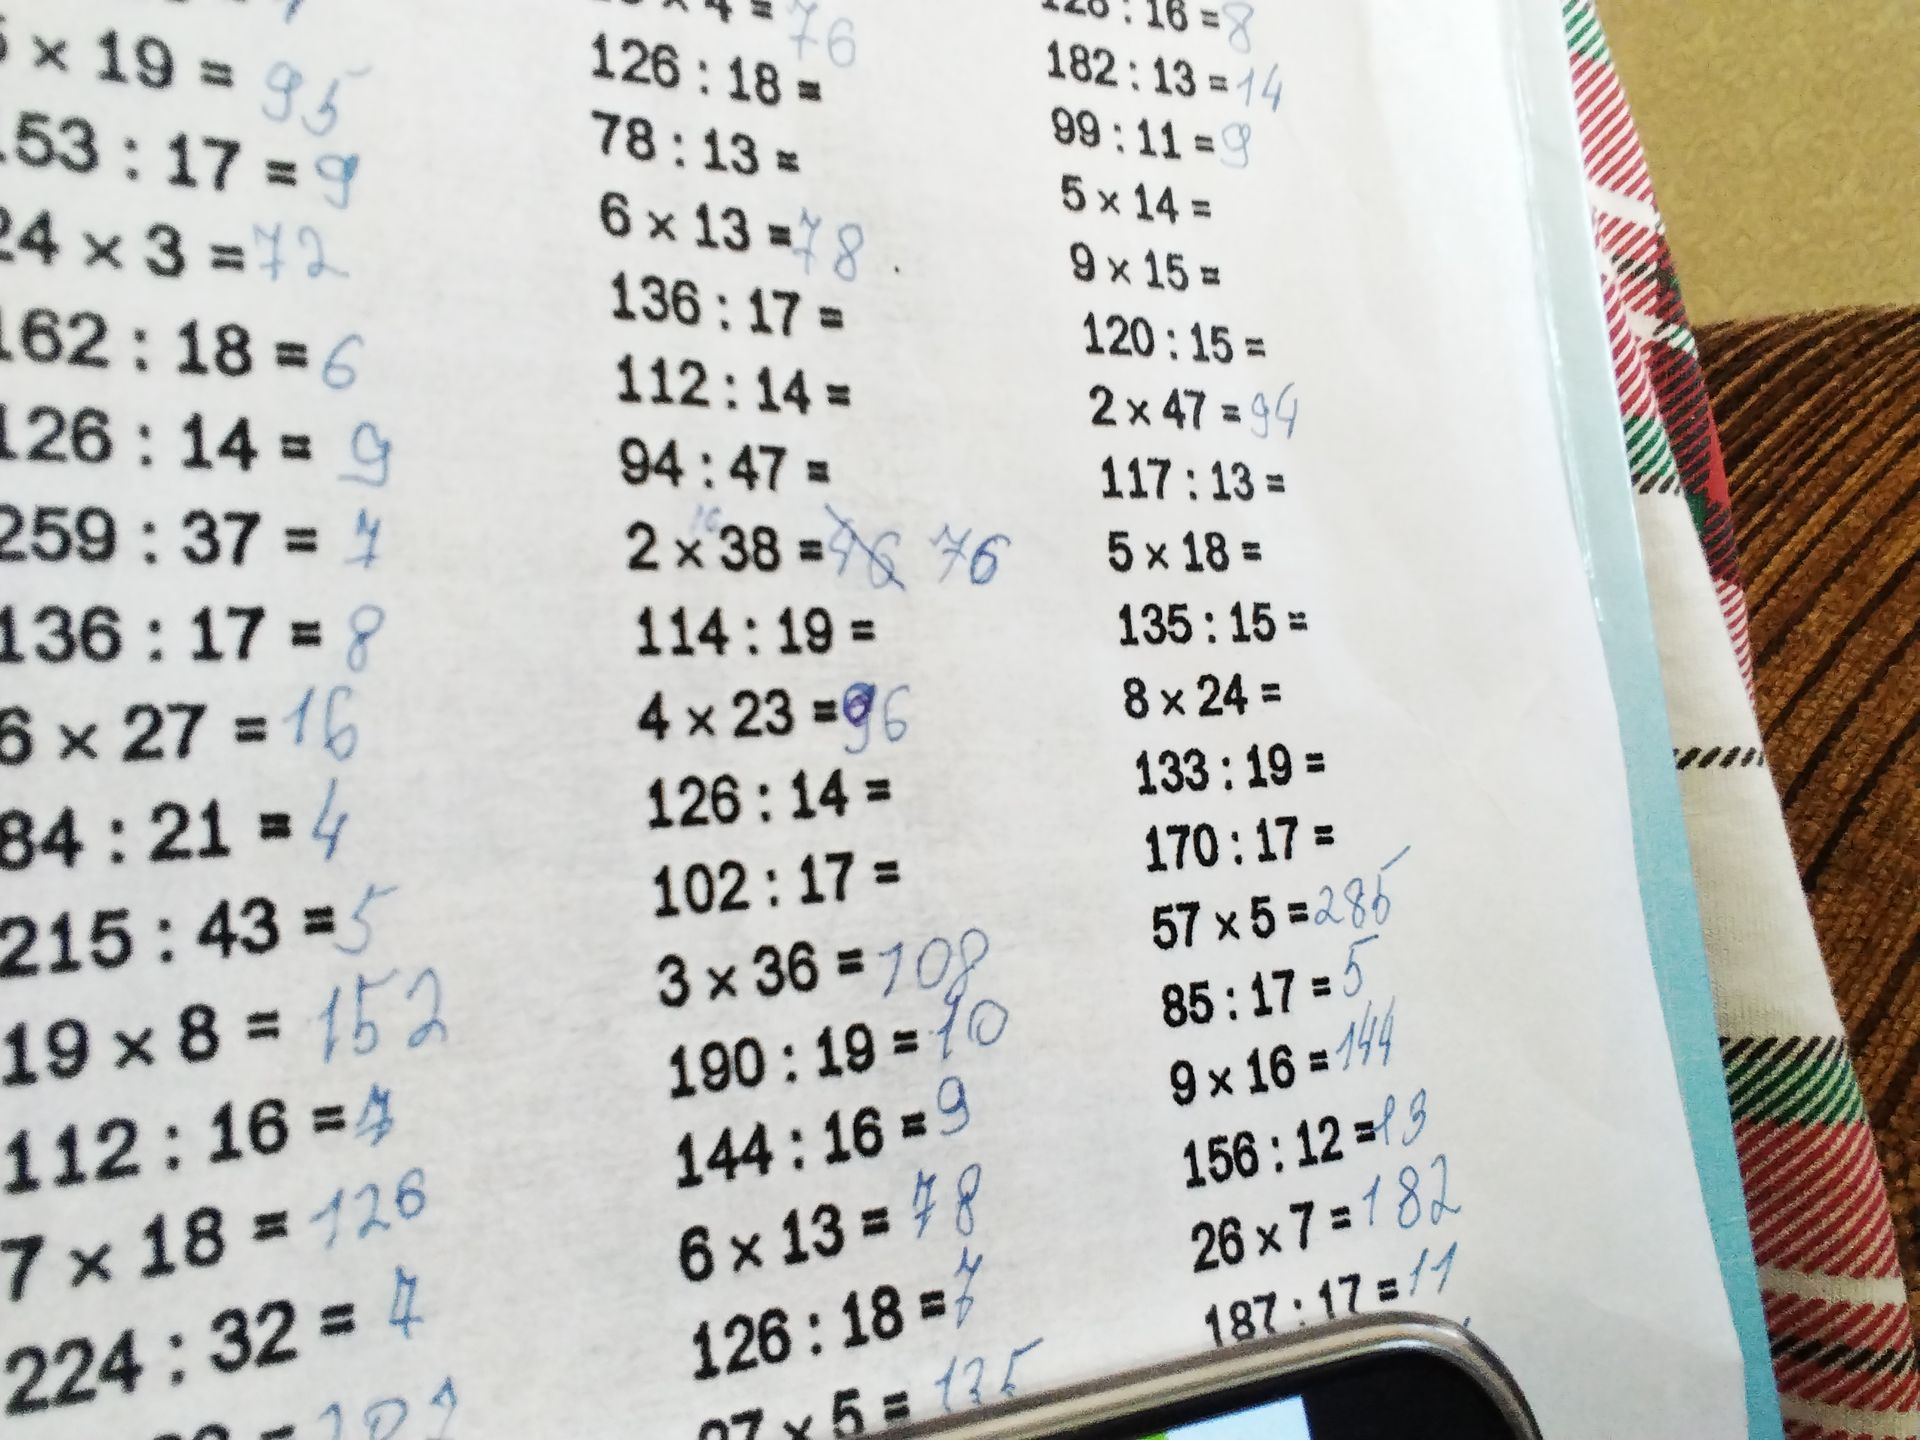 × 19 = 95
153 : 17 = 9
24 × 3 = 72
162 : 18 = 6
126 : 14 = 9
259 : 37 = 7
136 : 17 = 8
6 × 27 = 16
84 : 21 = 4
215 : 43 = 5
19 × 8 = 152
112 : 16 = 7
7 × 18 = 126
224 : 32 = 7
× 4 = 76
126 : 18 =
78 : 13 =
6 × 13 = 78
136 : 17 =
112 : 14 =
94 : 47 =
16
2 × 38 = 76
114 : 19 =
4 × 23 = 96
126 : 14 =
102 : 17 =
3 × 36 = 108
190 : 19 = 10
144 : 16 = 9
6 × 13 = 78
126 : 18 = 7
27 × 5 = 135
128 : 16 = 8
182 : 13 = 14
99 : 11 = 9
5 × 14 =
9 × 15 =
120 : 15 =
2 × 47 = 94
117 : 13 =
5 × 18 =
135 : 15 =
8 × 24 =
133 : 19 =
170 : 17 =
57 × 5 = 285
85 : 17 = 5
9 × 16 = 144
156 : 12 = 13
26 × 7 = 182
187 : 17 = 11